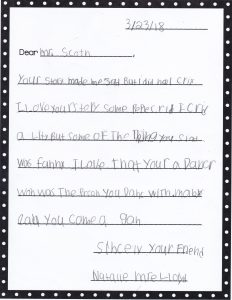 3/23/18
Dear Mr. Scoth
Your story made me Say But I did not Cry
I Love your story Some People cri I Cry
a Lit But Some OF The thing You Siad
Was funny I Love that Your a Dancr
with was The Prson You Danc with
You Come a gan
Sincely Your Friend
Natalie